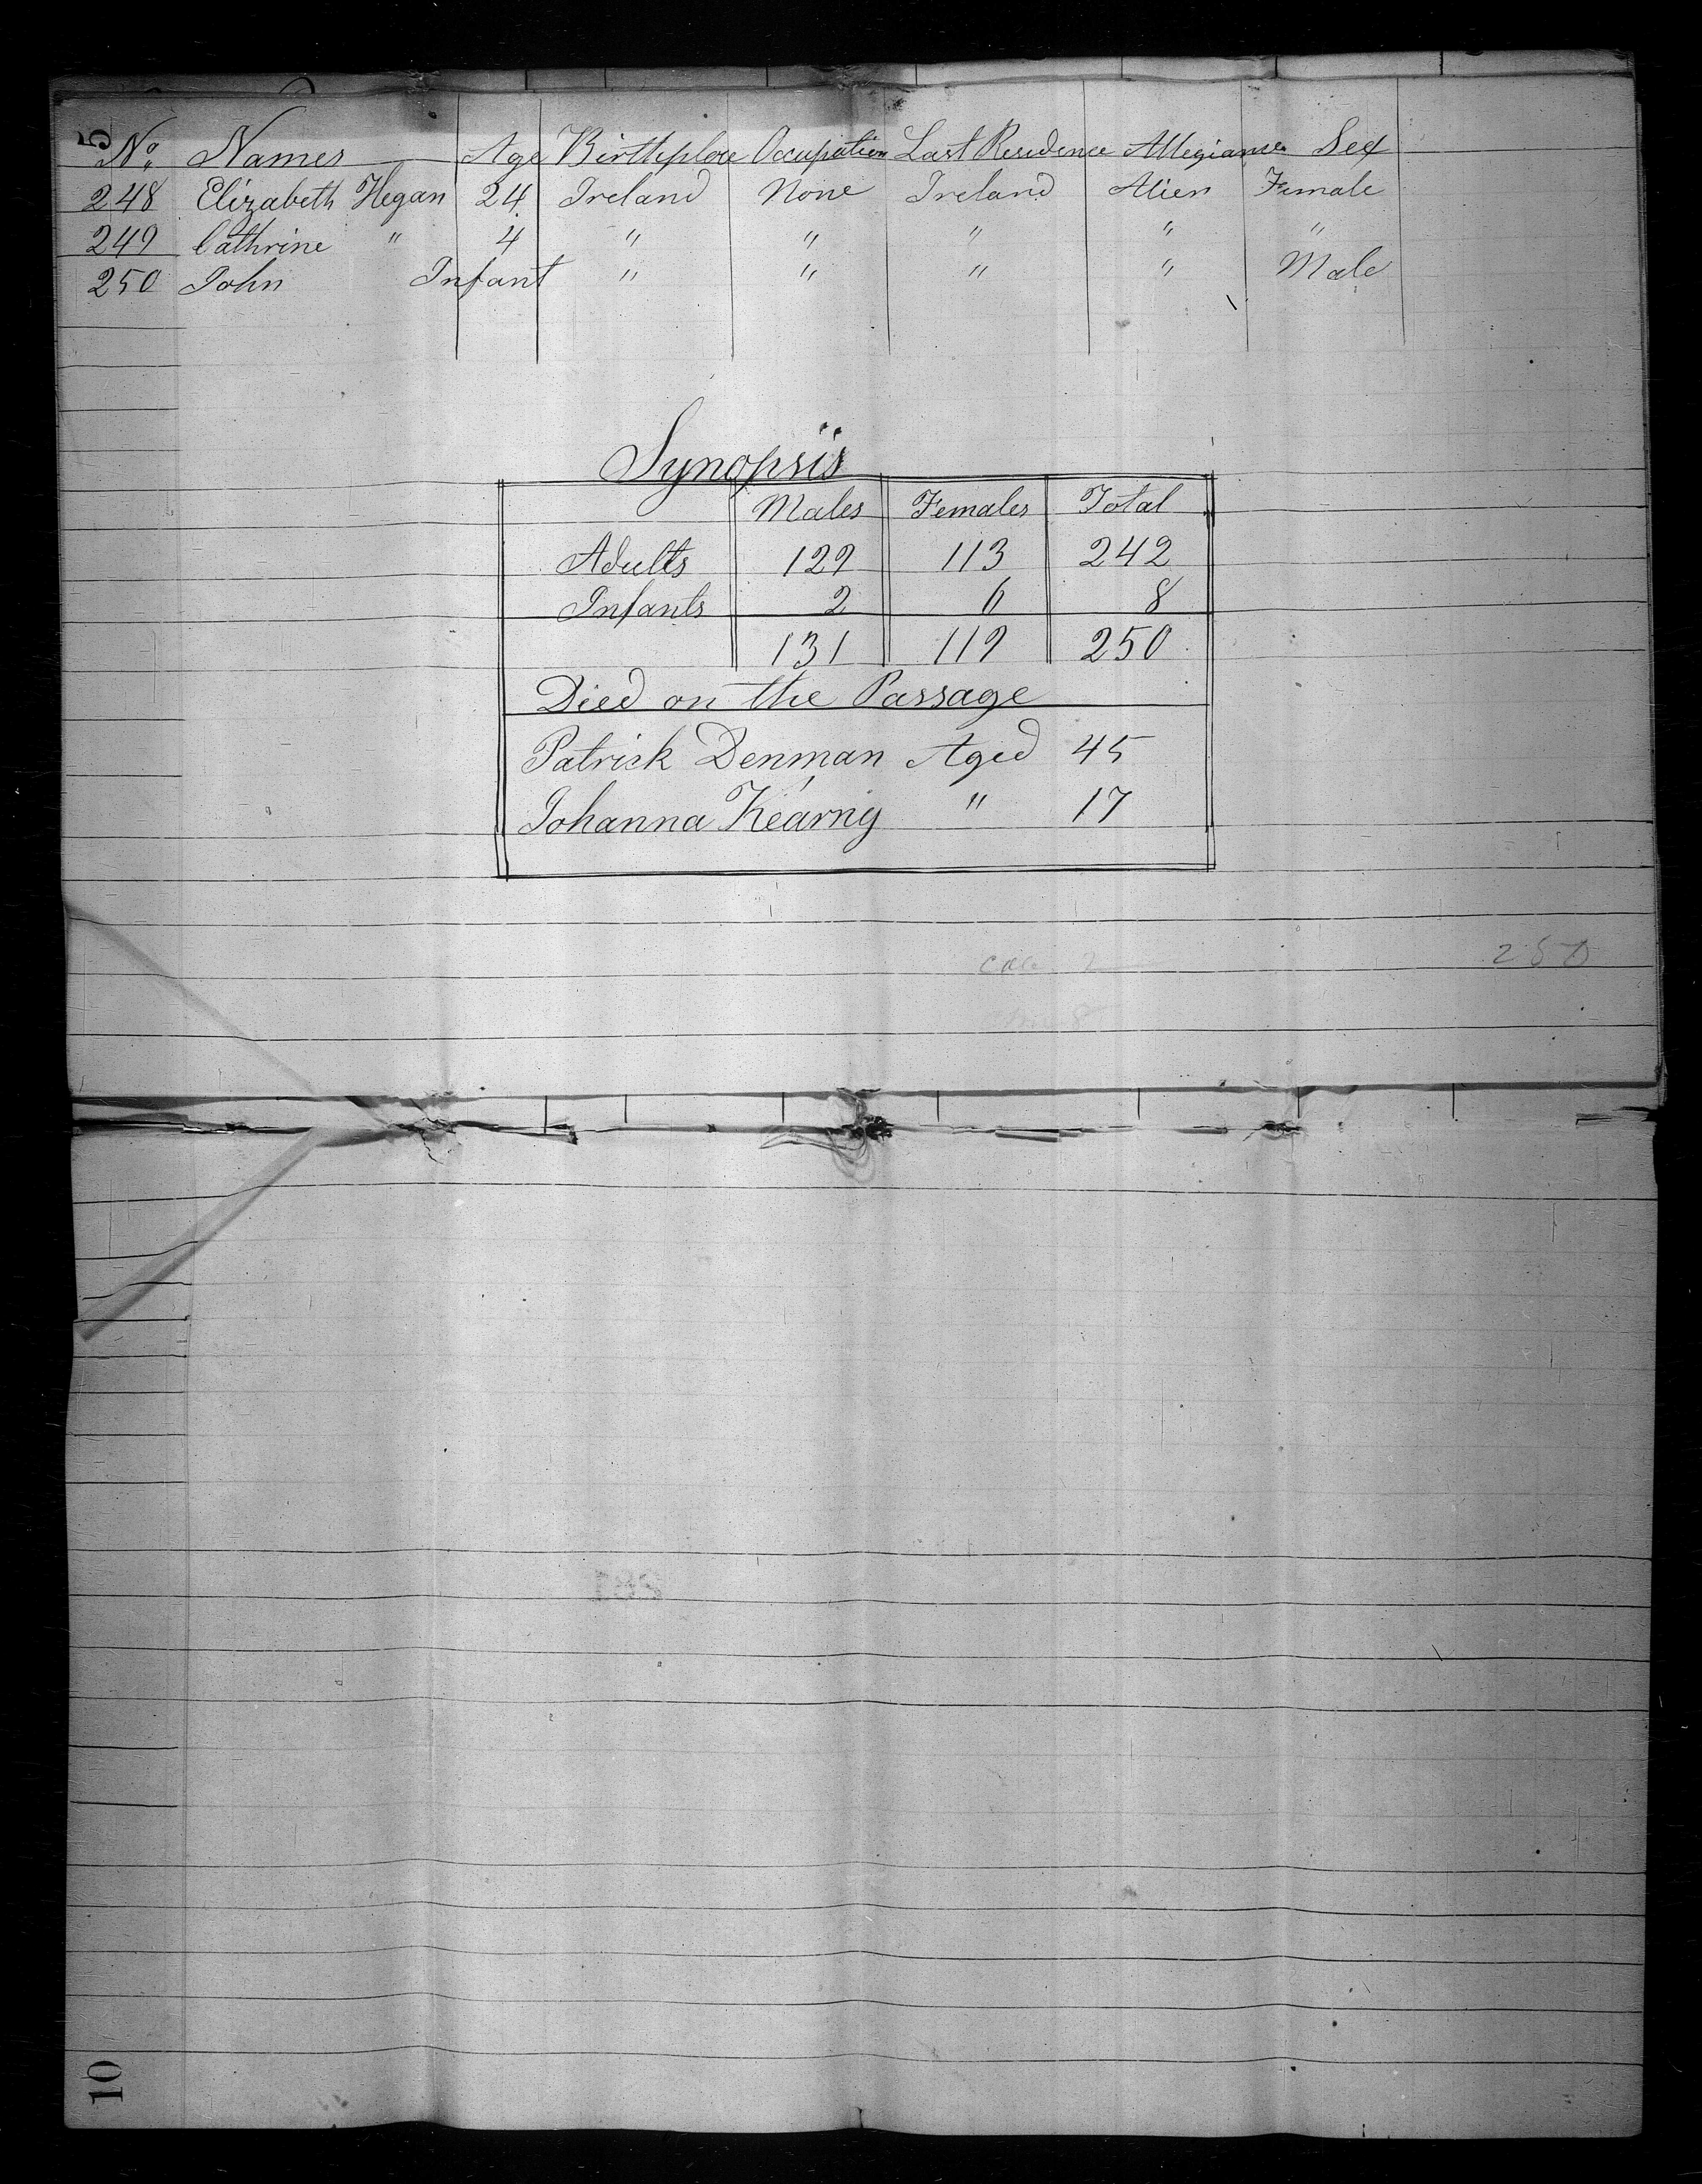 5
No. Names Age Birthplace Occupation Last Residence Allegianse Sex
248 Elizabeth Hegan 24 Ireland None Ireland Alien Female
249 Cathrine " 4 " " " " "
250 John Infant " " " " Male
Synopsis
Males Females Total
Adults 129 113 242
Infants 2 6 8
131 119 250
Died on the Passage
Patrick Denman Aged 45
Johanna Kearny " 17
250
10